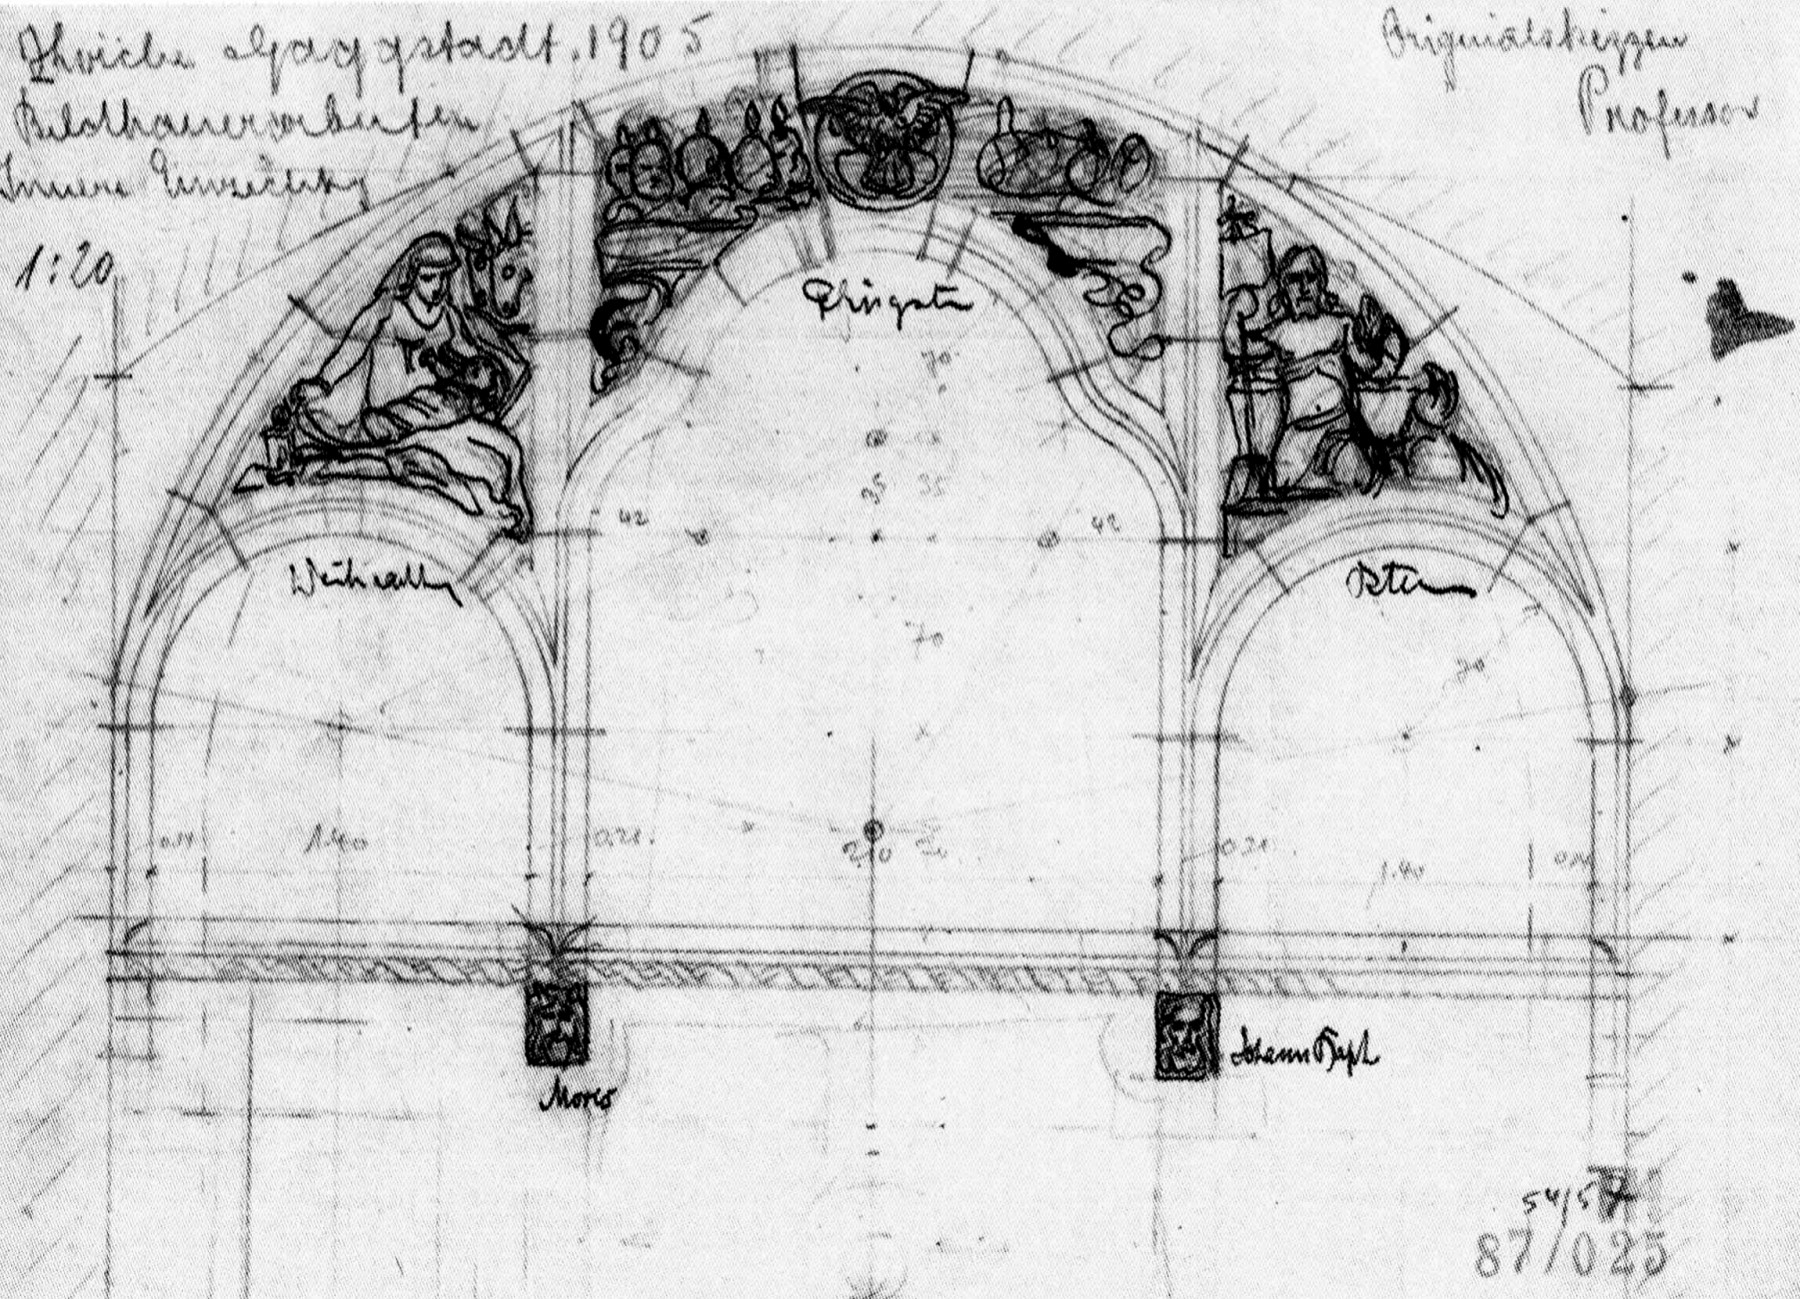 Kirche Gaggstadt. 1905
Bildhauerarbeiten
Innere Einrichtung
1:20
Originalskizzen
Professor
Pfingsten
70
35 35
42 42
Weihnachten
Ostern
70
70
0.14 1.40 0.21. 2.10 0.21. 1.40 0.14
Moses
Johann Bapt
54/57
87/025